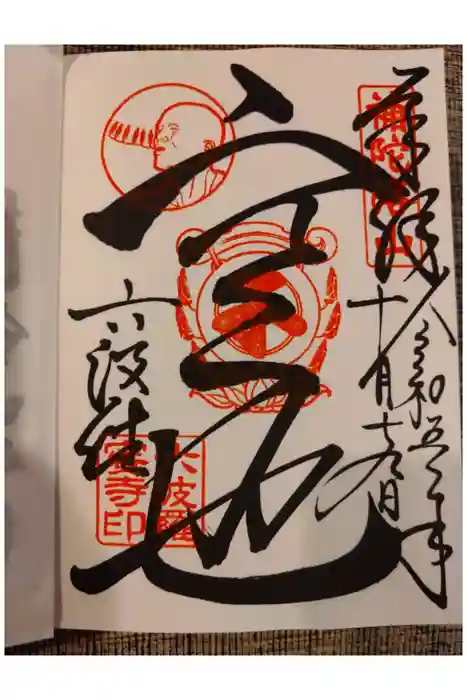 奉拝
令和五年
十月十九日
空也
六波羅
六波羅
蜜寺印